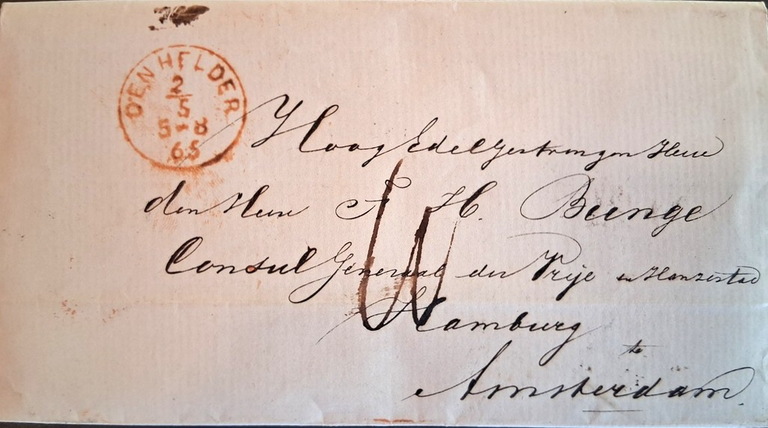 DEN HELDER
2
5
5-8
65
Hoog Edel Gestrengen Heere
den Heere F. H. Bunge
Consul Generaal der Vrije en Hanzestad
Hamburg
te
Amsterdam.